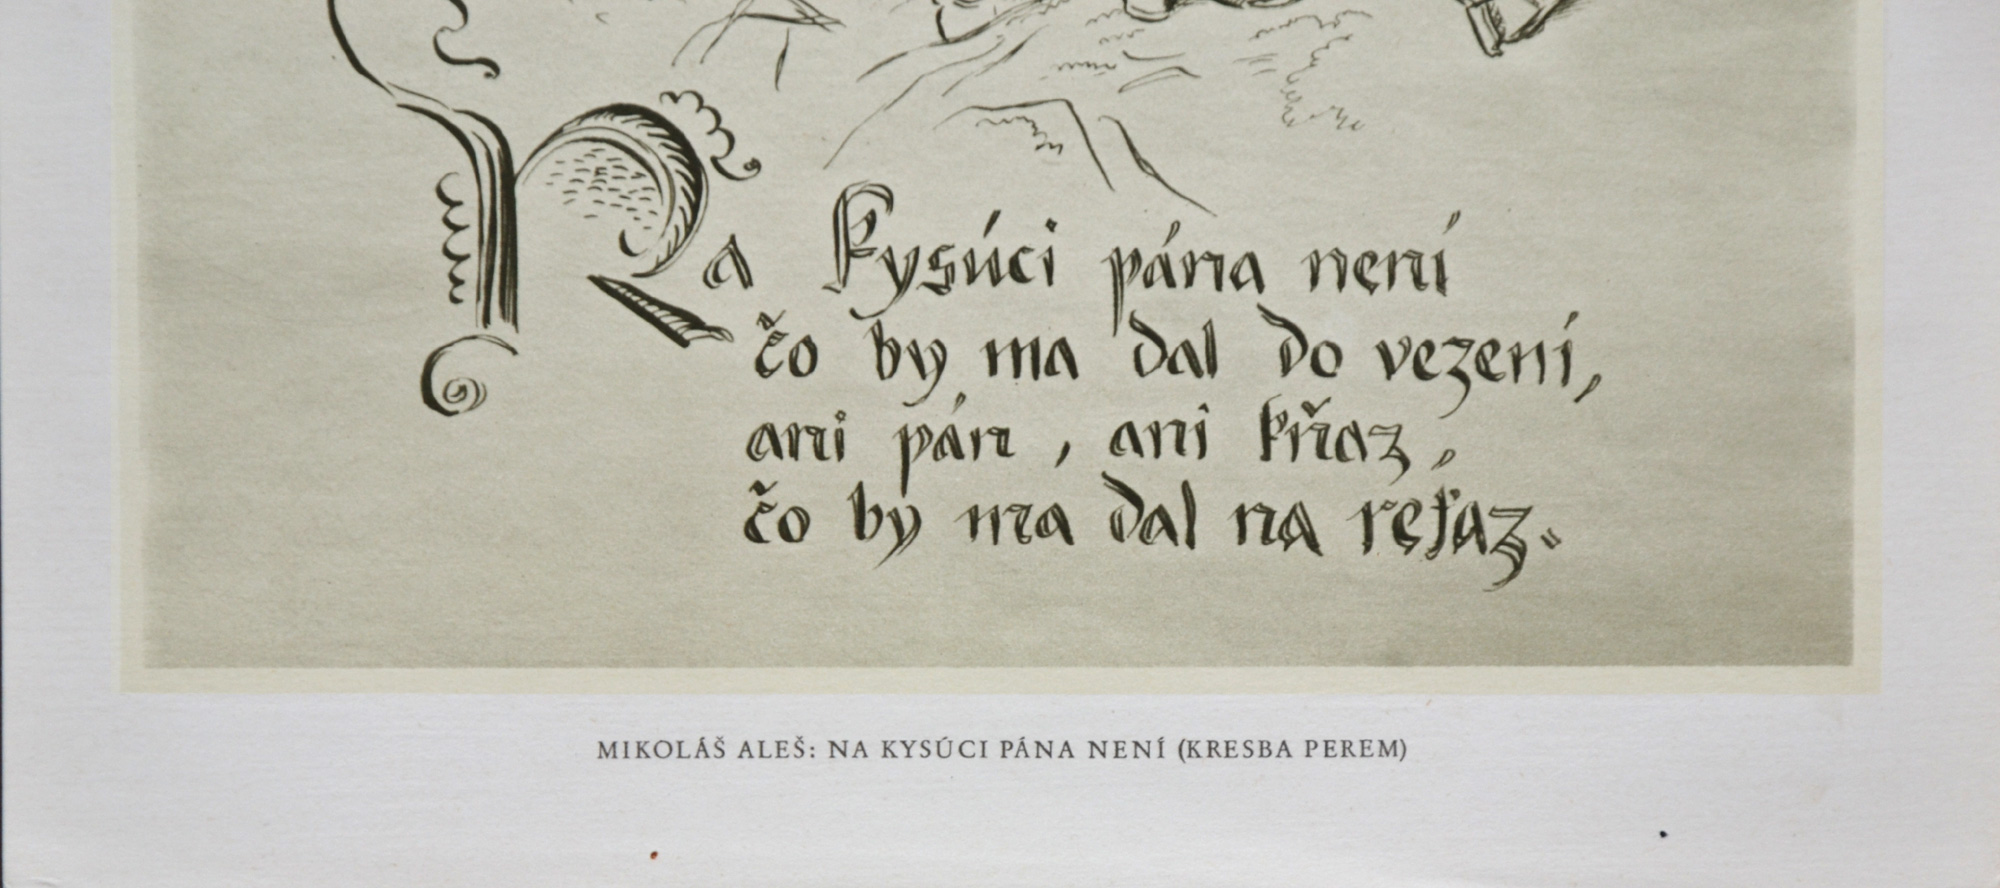 Na Kysúci pána není
čo by ma dal do vezení,
ani pán, ani kňaz,
čo by ma dal na reťaz.
MIKOLÁŠ ALEŠ: NA KYSÚCI PÁNA NENÍ (KRESBA PEREM)